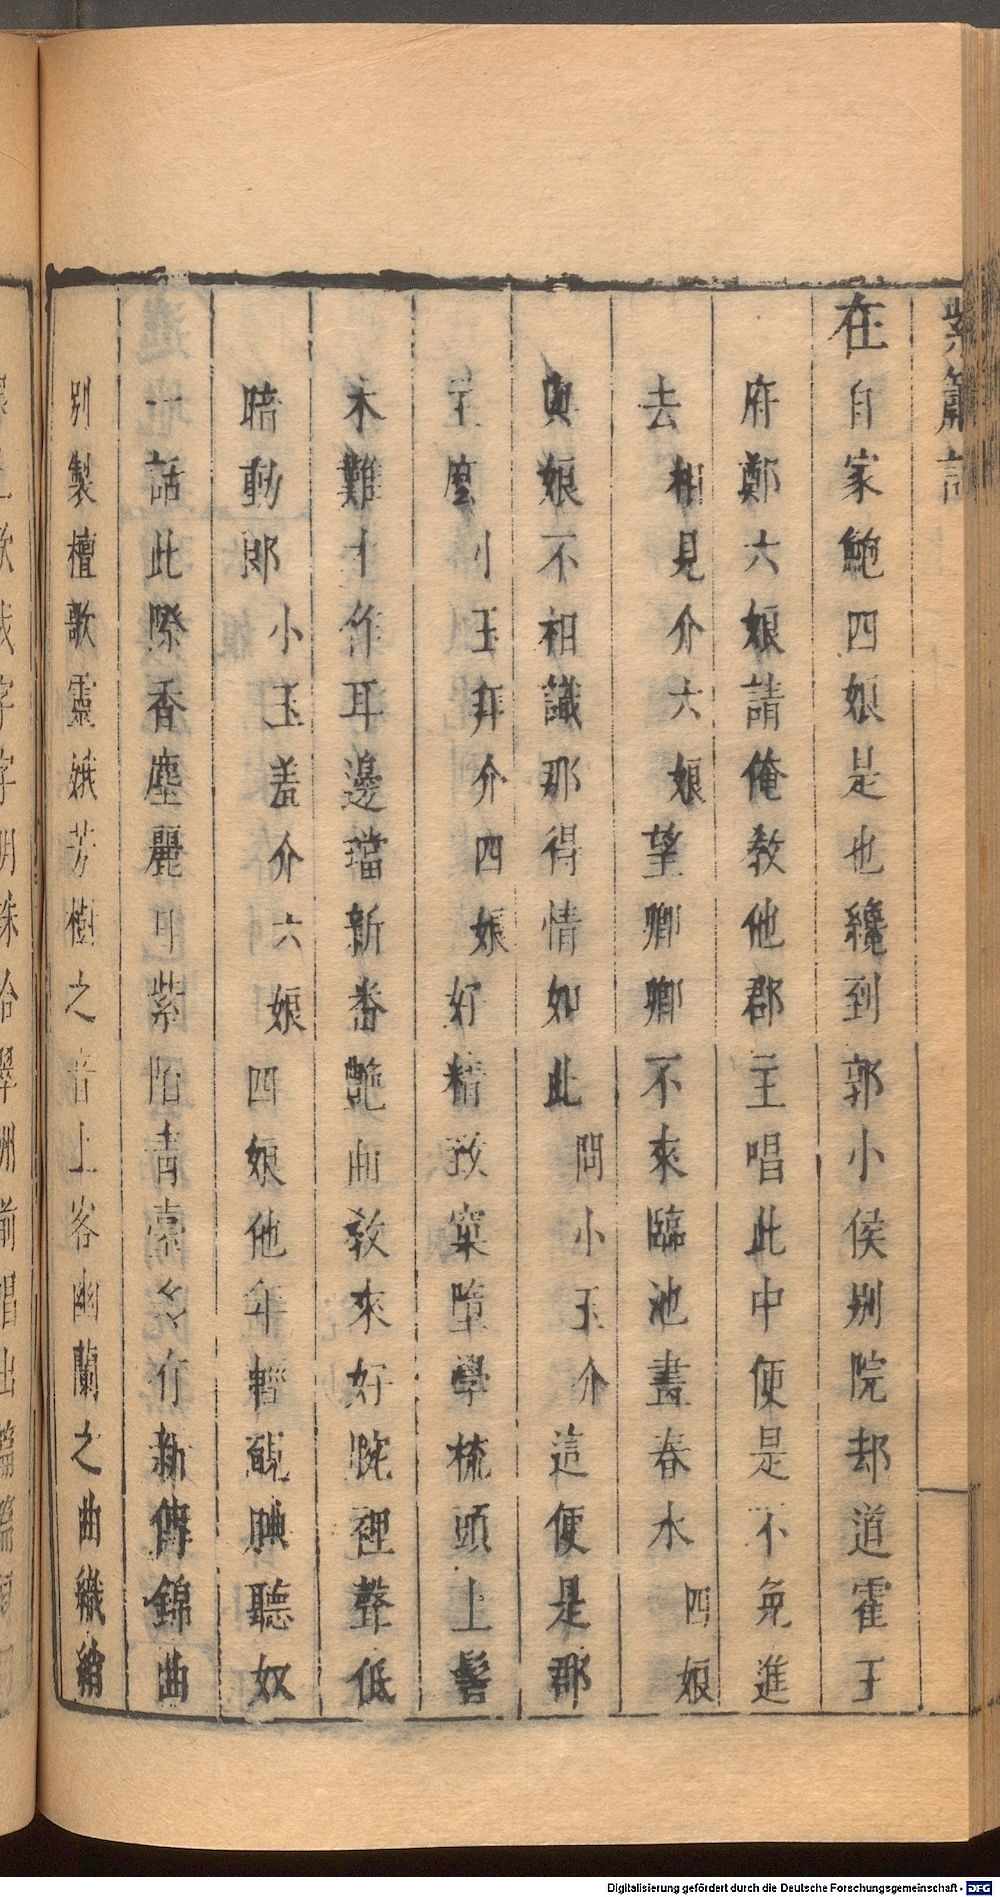 紫簫記
在自家鮑四娘是也纔到郭小侯別院却道霍王
府鄭六娘請俺教他郡主唱此中便是不免進
去相見介六娘望卿卿不來臨池畫春水四娘
與娘不相識那得情如此問小玉介這便是郡
主麼小玉拜介四娘好精致窠墮學梳頭上髻
未難十作耳邊璫新番艷曲教來好腕裡聲低
暗動郎小玉羞介六娘四娘他年輕靦腆聽奴
一話此際香塵麗日紫陌青霄多有新傳錦曲
別製檀歌靈娥芳樹之音上客幽蘭之曲織綃
Digitalisierung gefördert durch die Deutsche Forschungsgemeinschaft - DFG